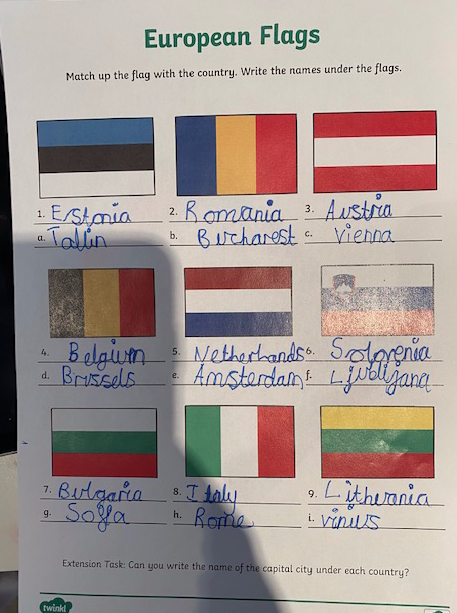 European Flags
Match up the flag with the country. Write the names under the flags.
1. Estonia 2. Romania 3. Austria
a. Tallin b. Bucharest c. Vienna
4. Belgium 5. Netherlands 6. Slovenia
d. Brussels e. Amsterdam f. Ljublijana
7. Bulgaria 8. Italy 9. Lithuania
g. Sofia h. Rome i. vinius
Extension Task: Can you write the name of the capital city under each country?
twinkl